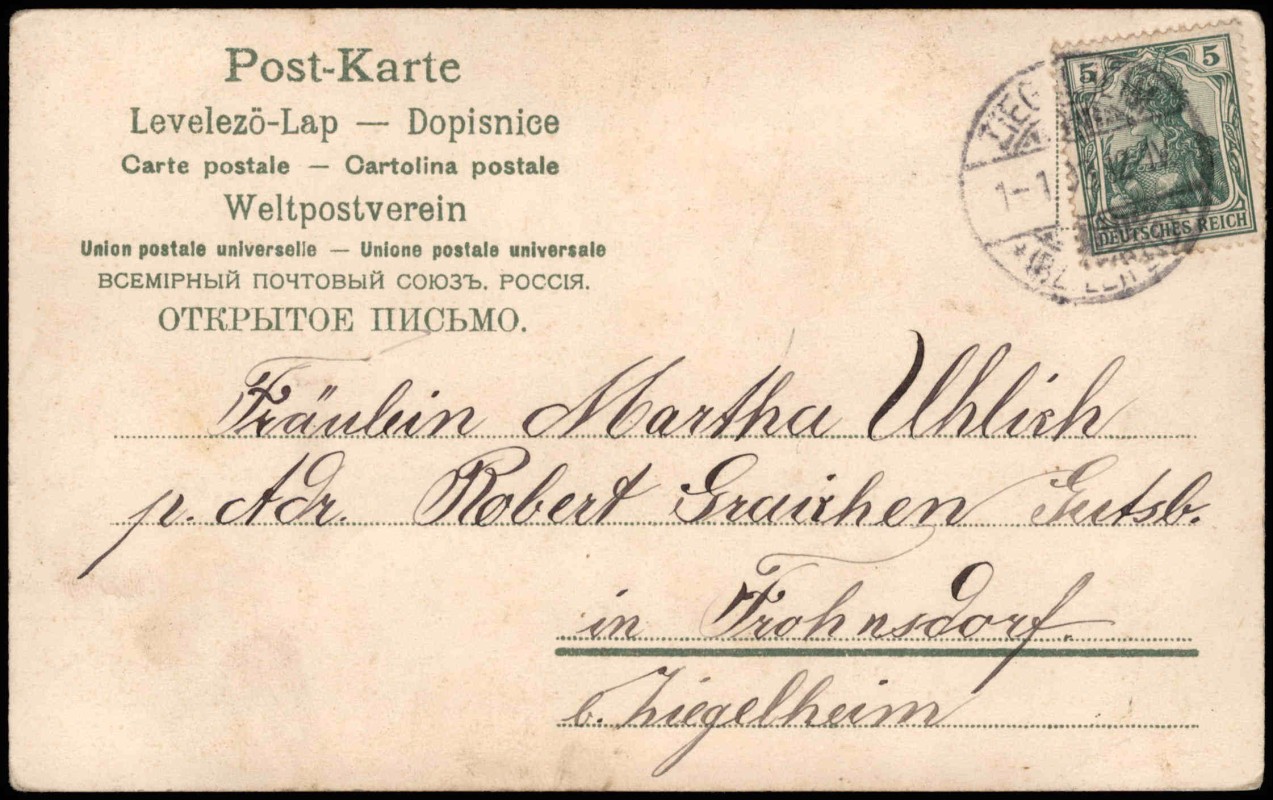 Post-Karte
Levelezö-Lap — Dopisnice
Carte postale — Cartolina postale
Weltpostverein
Union postale universelle — Unione postale universale
ВСЕМІРНЫЙ ПОЧТОВЫЙ СОЮЗЪ. РОССІЯ.
ОТКРЫТОЕ ПИСЬМО.
5 5
DEUTSCHES REICH
Fräulein Martha Uhlich
p. Adr. Robert Graichen Gutsb.
in Frohnsdorf.
b. Ziegelheim